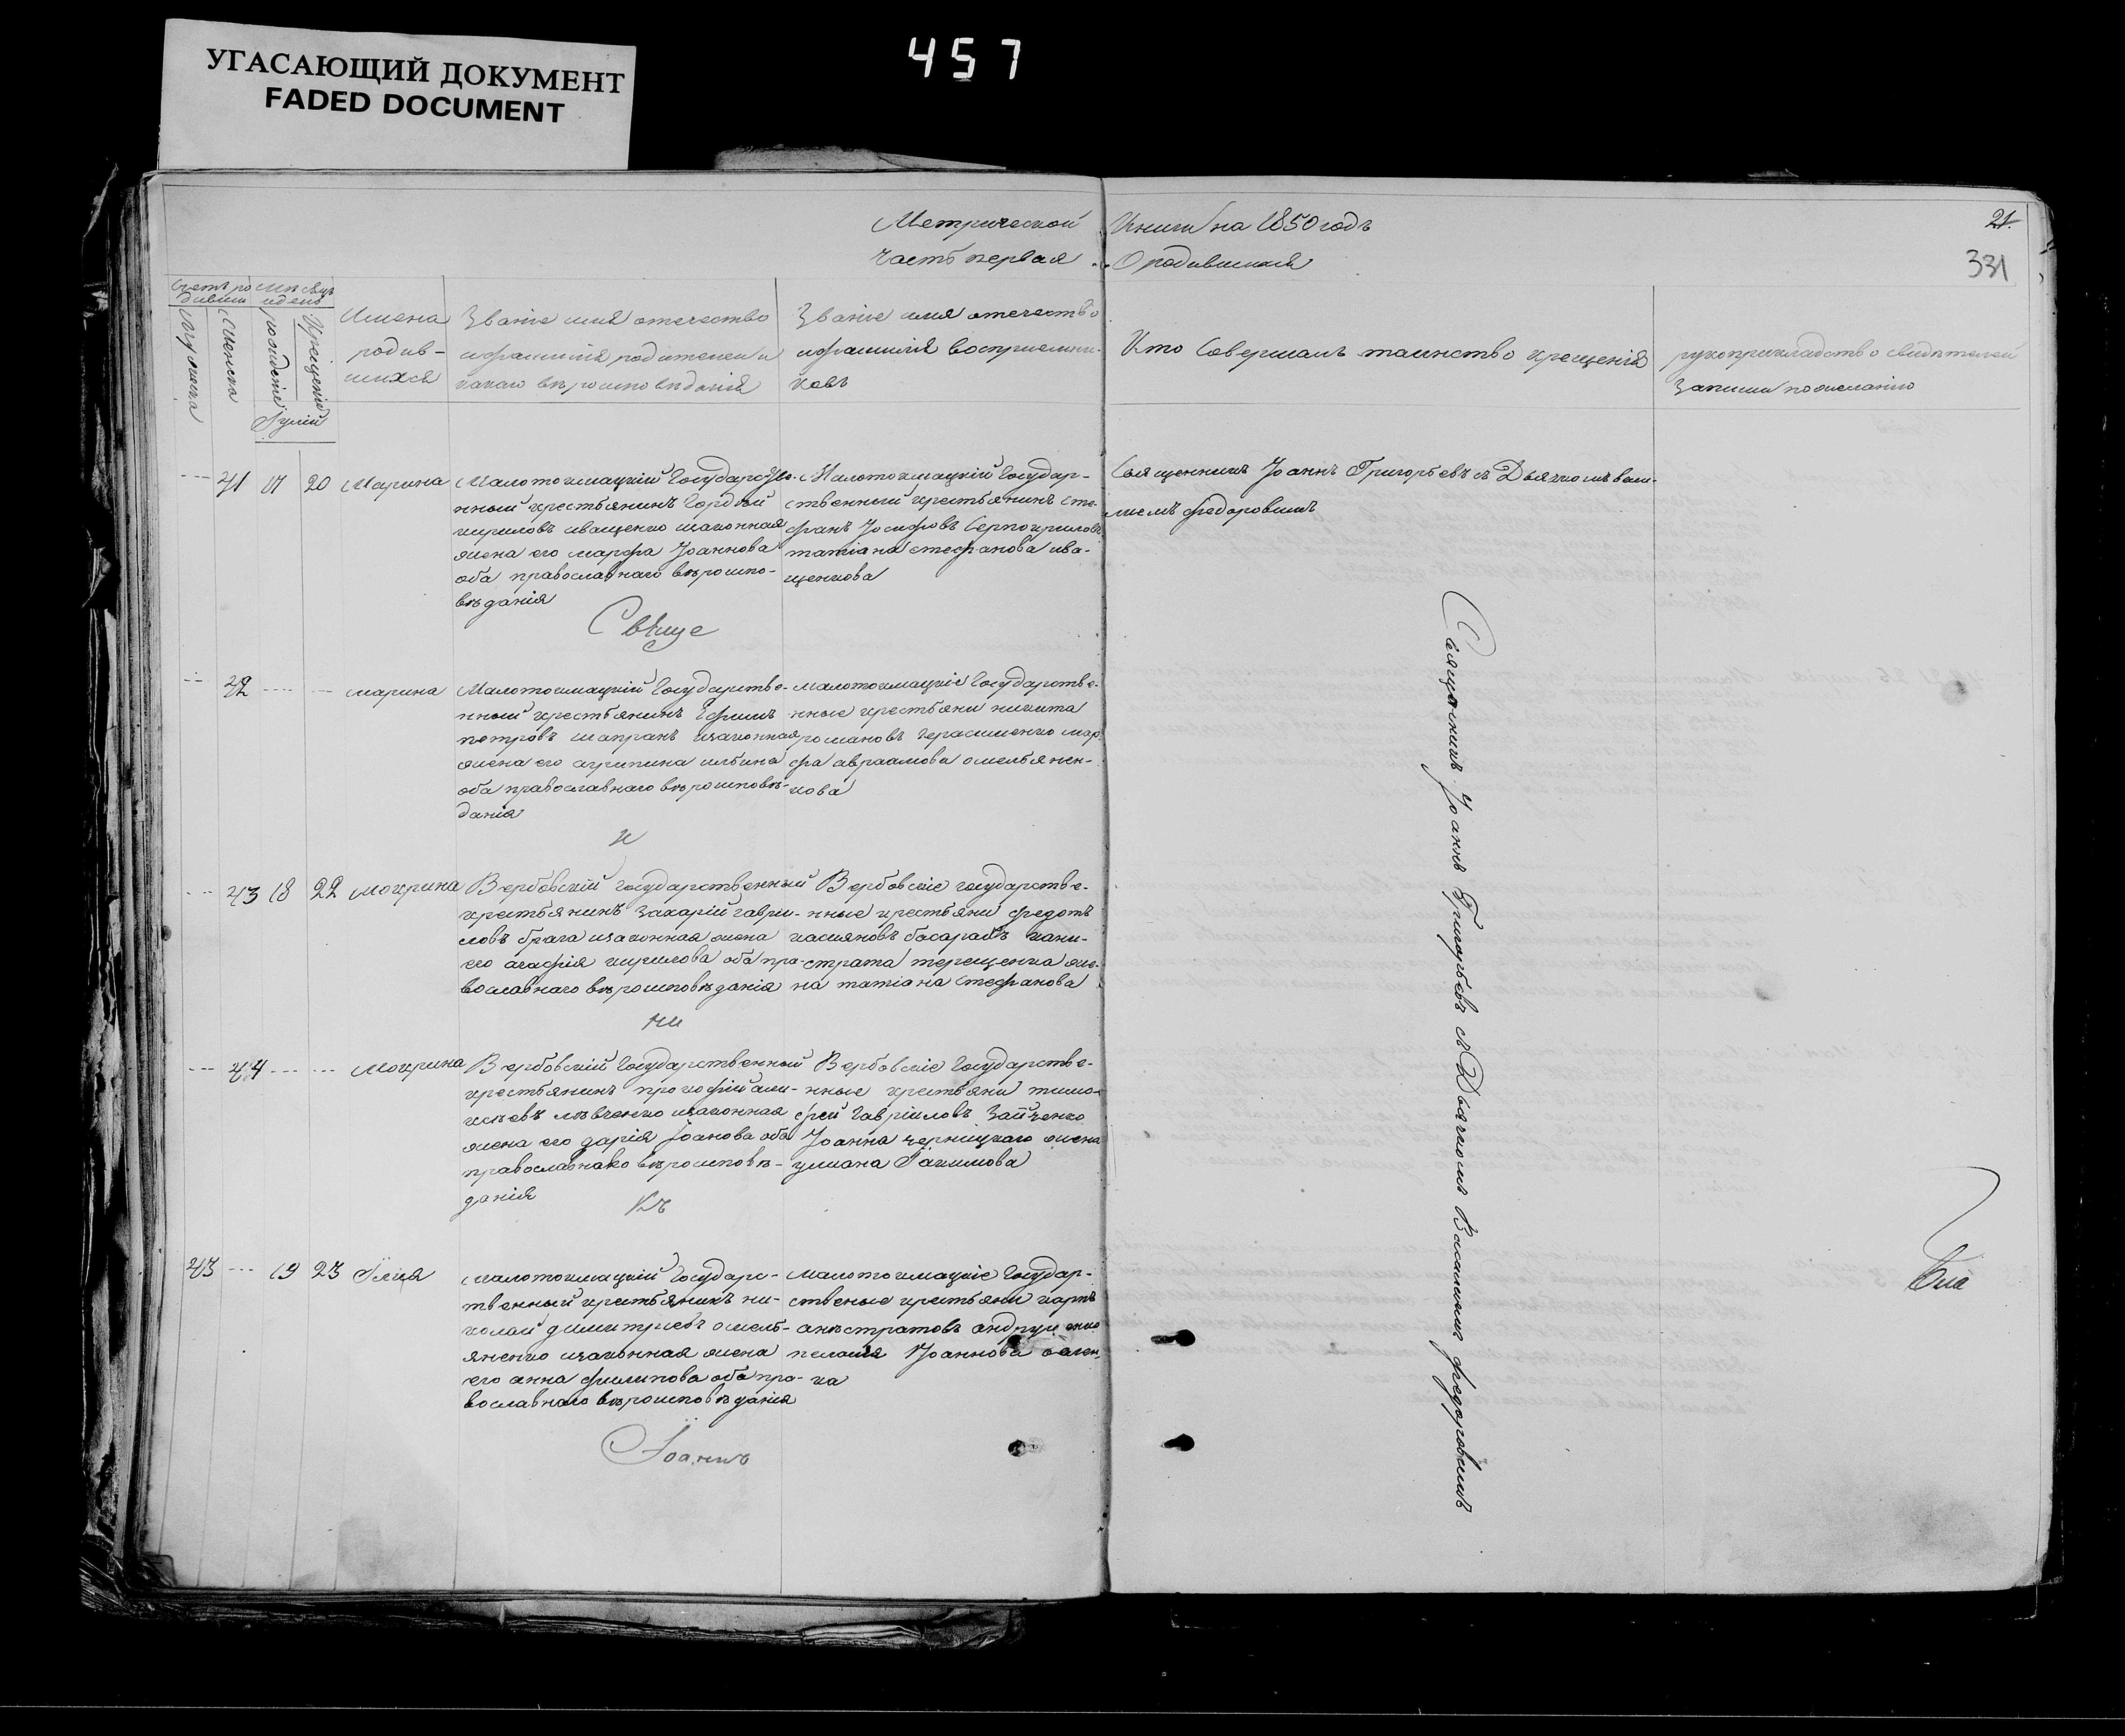 УГАСАЮЩИЙ ДОКУМЕНТ
FADED DOCUMENT
457
Метрической Книги на 1850 годъ
21.
часть первая О родившихся
331
Счетъ ро Мѣсяцъ
дивши и день
Мужеска
Женска
рожденіе
Крещеніе
Іулій
Имена
родив-
шихся
Званіе имя отечество
и фамилія родителей и
какого вѣроисповѣданія
Званіе имя отечество
и фамилія восприемни-
ковъ
Кто совершалъ таинство крещенія
рукоприкладство свидѣтелей
записки по желанію
41 17 20 Марина
Малотокмацкій Государстве-
нный крестьянинъ Гордѣй
кириловъ иващенко
жена его марфа Іоаннова
оба православнаго вѣроиспо-
вѣданія
Малотокмацкій Государ-
ственный крестьянинъ сте-
фанъ Іосифовъ
татіана стефанова ива-
щенкова
Священникъ Іоаннъ Григорьевъ съ Дьячкомъ васи-
лиемъ федоровымъ
Свяще
42 марина
Малотокмацкій Государстве-
нный крестьянинъ Ефимъ
петровъ шапранъ изаконная
жена его агрипина ильина
оба православнаго вѣроисповѣ-
данія
малотокмацкіе Государстве-
нные крестьяни никита
романовъ герасименко мар
фа авраамова омельянен-
кова
н
43 18 22 Мокрина
Вербовскій государственный
крестьянинъ захарій гаври-
ловъ брага изаконная жена
его агафія кирилова оба пра-
вославнаго вѣроисповѣданія
Вербовскіе государстве-
нные крестьяни федотъ
касияновъ басарабъ кали-
страта терещенка же-
на татіана Стефанова
ни
44 Мокрина
Вербовскій Государственный
крестьянинъ прокофій али-
ксѣевъ лѣвченко изаконная
жена его дарія Іоанова оба
православнако вѣроисповѣ-
данія
Вербовскіе Государстве-
нные крестьяни тимо-
фей Гавріиловъ Зайченко
Іоанна черницкаго жена
улиана Іакимова
къ
43 19 23 Ілия
малотокмацкій Государс-
твенный крестьянинъ ни-
колай димитриевъ омель-
яненко изаконная жена
его анна филипова оба пра-
вославнаго вѣроисповѣданія
малотокмацкіе Государ-
ственые крестьяни карпъ
анѣстратовъ андрущенко
пелагия Іоаннова
ка
Іоаннъ
Священникъ Іоаннъ Григорьевъ съ Дьячкомъ Василиемъ федоровымъ